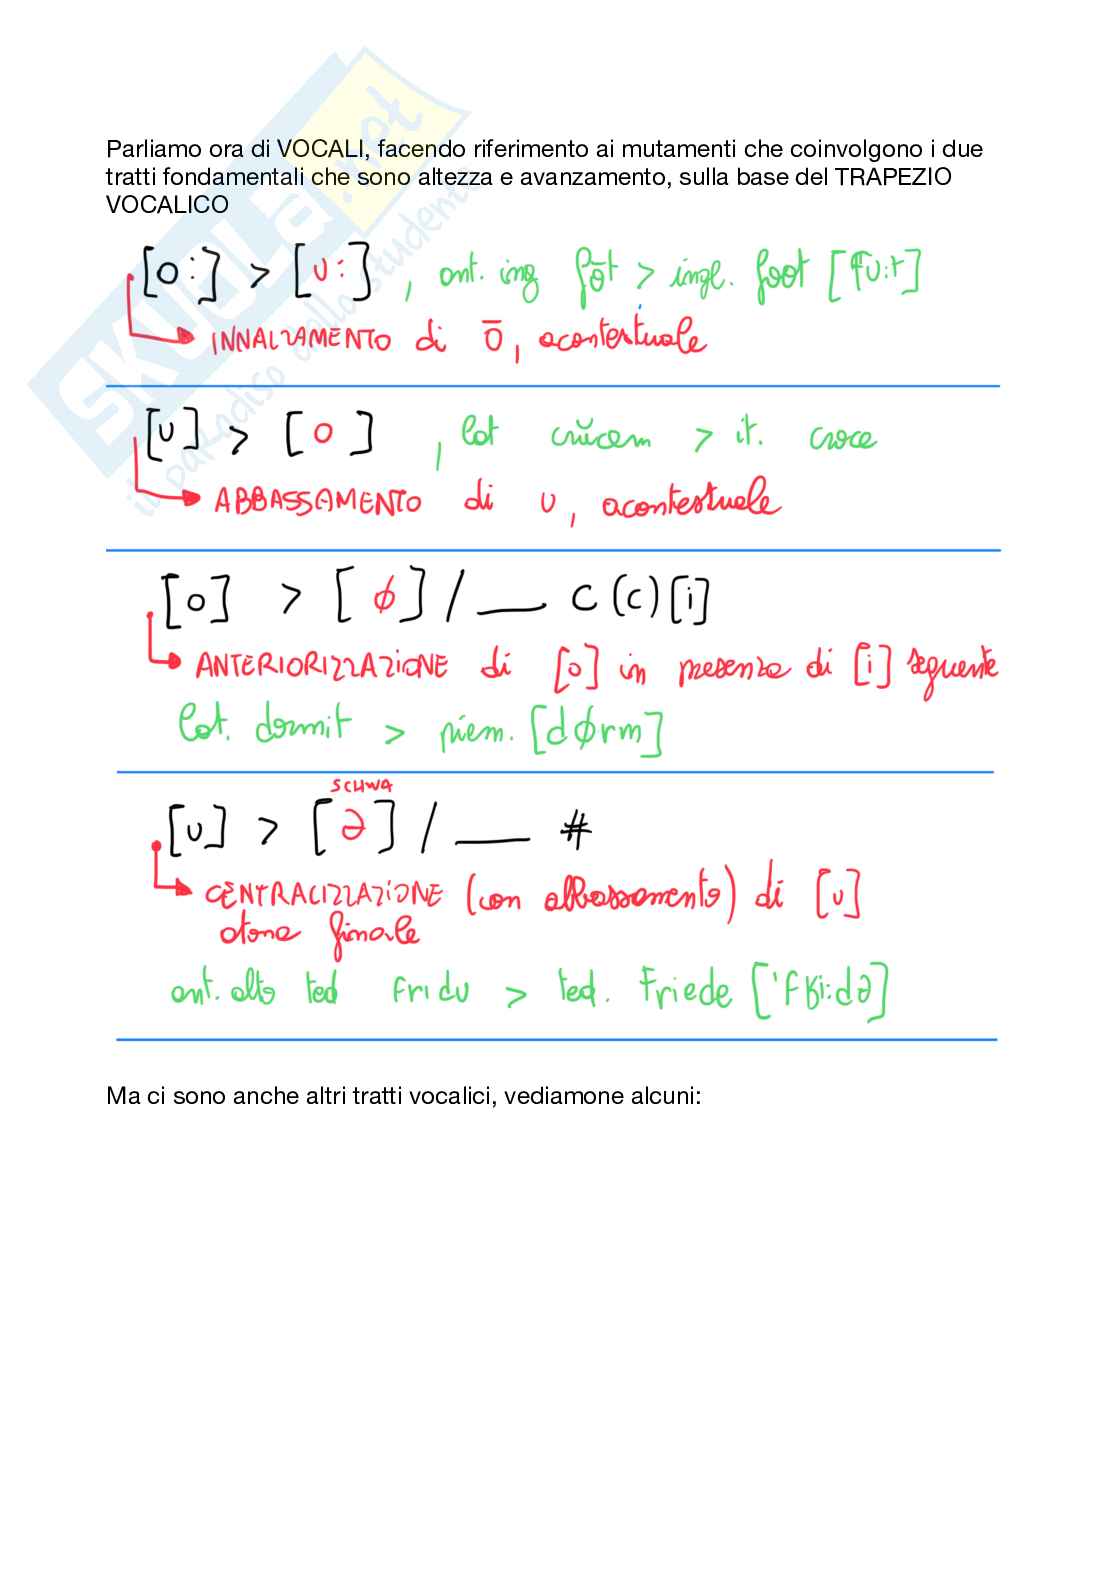 Parliamo ora di VOCALI, facendo riferimento ai mutamenti che coinvolgono i due
tratti fondamentali che sono altezza e avanzamento, sulla base del TRAPEZIO
VOCALICO
[o:] > [u:] , ant. ing fōt > ingl. foot [fu:t]
INNALZAMENTO di ō, acontestuale
[u] > [o] , lat crŭcem > it. croce
ABBASSAMENTO di u, acontestuale
[o] > [ø] / __ C (C) [i]
ANTERIORIZZAZIONE di [o] in presenza di [i] seguente
lat. dormit > piem. [dørm]
SCHWA
[u] > [ə] / __ #
CENTRALIZZAZIONE (con abbassamento) di [u]
atona finale
ant. alto ted fridu > ted. Friede ['fʁi:də]
Ma ci sono anche altri tratti vocalici, vediamone alcuni:
SKUOLA.net
il paradiso dello studente